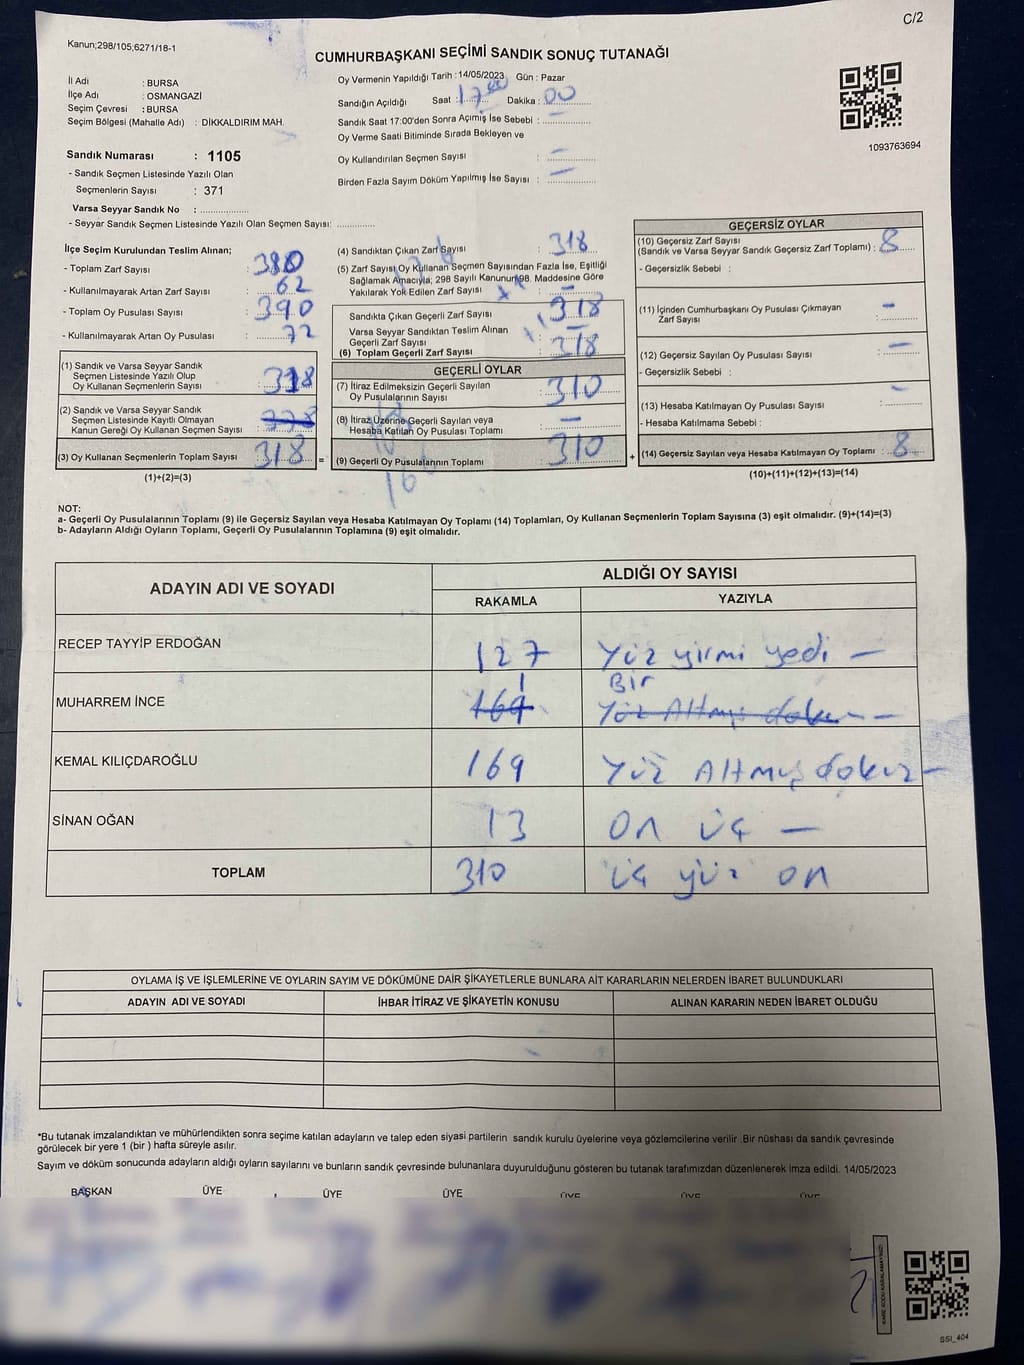 C/2
Kanun;298/105;6271/18-1
CUMHURBAŞKANI SEÇİMİ SANDIK SONUÇ TUTANAĞI
İl Adı : BURSA
İlçe Adı : OSMANGAZİ
Seçim Çevresi : BURSA
Seçim Bölgesi (Mahalle Adı) : DİKKALDIRIM MAH.
Oy Vermenin Yapıldığı Tarih :14/05/2023 Gün : Pazar
Sandığın Açıldığı Saat : 17.00 Dakika : 00
Sandık Saat 17:00'den Sonra Açımış İse Sebebi :
Oy Verme Saati Bitiminde Sırada Bekleyen ve
Oy Kullandırılan Seçmen Sayısı : —
Birden Fazla Sayım Döküm Yapılmış İse Sayısı : —
1093763694
Sandık Numarası : 1105
- Sandık Seçmen Listesinde Yazılı Olan
Seçmenlerin Sayısı : 371
Varsa Seyyar Sandık No :
- Seyyar Sandık Seçmen Listesinde Yazılı Olan Seçmen Sayısı:
İlçe Seçim Kurulundan Teslim Alınan;
- Toplam Zarf Sayısı : 380
- Kullanılmayarak Artan Zarf Sayısı : 62
- Toplam Oy Pusulası Sayısı : 390
- Kullanılmayarak Artan Oy Pusulası : 72
(1) Sandık ve Varsa Seyyar Sandık
Seçmen Listesinde Yazılı Olup
Oy Kullanan Seçmenlerin Sayısı : 318
(2) Sandık ve Varsa Seyyar Sandık
Seçmen Listesinde Kayıtlı Olmayan
Kanun Gereği Oy Kullanan Seçmen Sayısı :
(3) Oy Kullanan Seçmenlerin Toplam Sayısı : 318 =
(1)+(2)=(3)
(4) Sandıktan Çıkan Zarf Sayısı : 318
(5) Zarf Sayısı Oy Kullanan Seçmen Sayısından Fazla İse, Eşitliği
Sağlamak Amacıyla; 298 Sayılı Kanunun 98. Maddesine Göre
Yakılarak Yok Edilen Zarf Sayısı : —
Sandıkta Çıkan Geçerli Zarf Sayısı : 318
Varsa Seyyar Sandıktan Teslim Alınan
Geçerli Zarf Sayısı : —
(6) Toplam Geçerli Zarf Sayısı : 318
GEÇERLİ OYLAR
(7) İtiraz Edilmeksizin Geçerli Sayılan
Oy Pusulalarının Sayısı : 310
(8) İtiraz Üzerine Geçerli Sayılan veya
Hesaba Katılan Oy Pusulası Toplamı : —
(9) Geçerli Oy Pusulalarının Toplamı : 310 +
GEÇERSİZ OYLAR
(10) Geçersiz Zarf Sayısı
(Sandık ve Varsa Seyyar Sandık Geçersiz Zarf Toplamı) : 8
- Geçersizlik Sebebi :
(11) İçinden Cumhurbaşkanı Oy Pusulası Çıkmayan
Zarf Sayısı : —
(12) Geçersiz Sayılan Oy Pusulası Sayısı : —
- Geçersizlik Sebebi :
(13) Hesaba Katılmayan Oy Pusulası Sayısı : —
- Hesaba Katılmama Sebebi :
(14) Geçersiz Sayılan veya Hesaba Katılmayan Oy Toplamı : 8
(10)+(11)+(12)+(13)=(14)
NOT:
a- Geçerli Oy Pusulalarının Toplamı (9) ile Geçersiz Sayılan veya Hesaba Katılmayan Oy Toplamı (14) Toplamları, Oy Kullanan Seçmenlerin Toplam Sayısına (3) eşit olmalıdır. (9)+(14)=(3)
b- Adayların Aldığı Oyların Toplamı, Geçerli Oy Pusulalarının Toplamına (9) eşit olmalıdır.
ADAYIN ADI VE SOYADI ALDIĞI OY SAYISI
RAKAMLA YAZIYLA
RECEP TAYYİP ERDOĞAN 127 Yüz yirmi yedi —
1 Bir
MUHARREM İNCE 169 Yüz Altmış dokuz —
KEMAL KILIÇDAROĞLU 169 Yüz Altmış dokuz —
SİNAN OĞAN 13 on üç —
TOPLAM 310 üç yüz on
OYLAMA İŞ VE İŞLEMLERİNE VE OYLARIN SAYIM VE DÖKÜMÜNE DAİR ŞİKAYETLERLE BUNLARA AİT KARARLARIN NELERDEN İBARET BULUNDUKLARI
ADAYIN ADI VE SOYADI İHBAR İTİRAZ VE ŞİKAYETİN KONUSU ALINAN KARARIN NEDEN İBARET OLDUĞU
*Bu tutanak imzalandıktan ve mühürlendikten sonra seçime katılan adayların ve talep eden siyasi partilerin sandık kurulu üyelerine veya gözlemcilerine verilir .Bir nüshası da sandık çevresinde
görülecek bir yere 1 (bir ) hafta süreyle asılır.
Sayım ve döküm sonucunda adayların aldığı oyların sayılarını ve bunların sandık çevresinde bulunanlara duyurulduğunu gösteren bu tutanak tarafımızdan düzenlenerek imza edildi. 14/05/2023
BAŞKAN ÜYE ÜYE ÜYE ÜYE ÜYE ÜYE
SSI_404